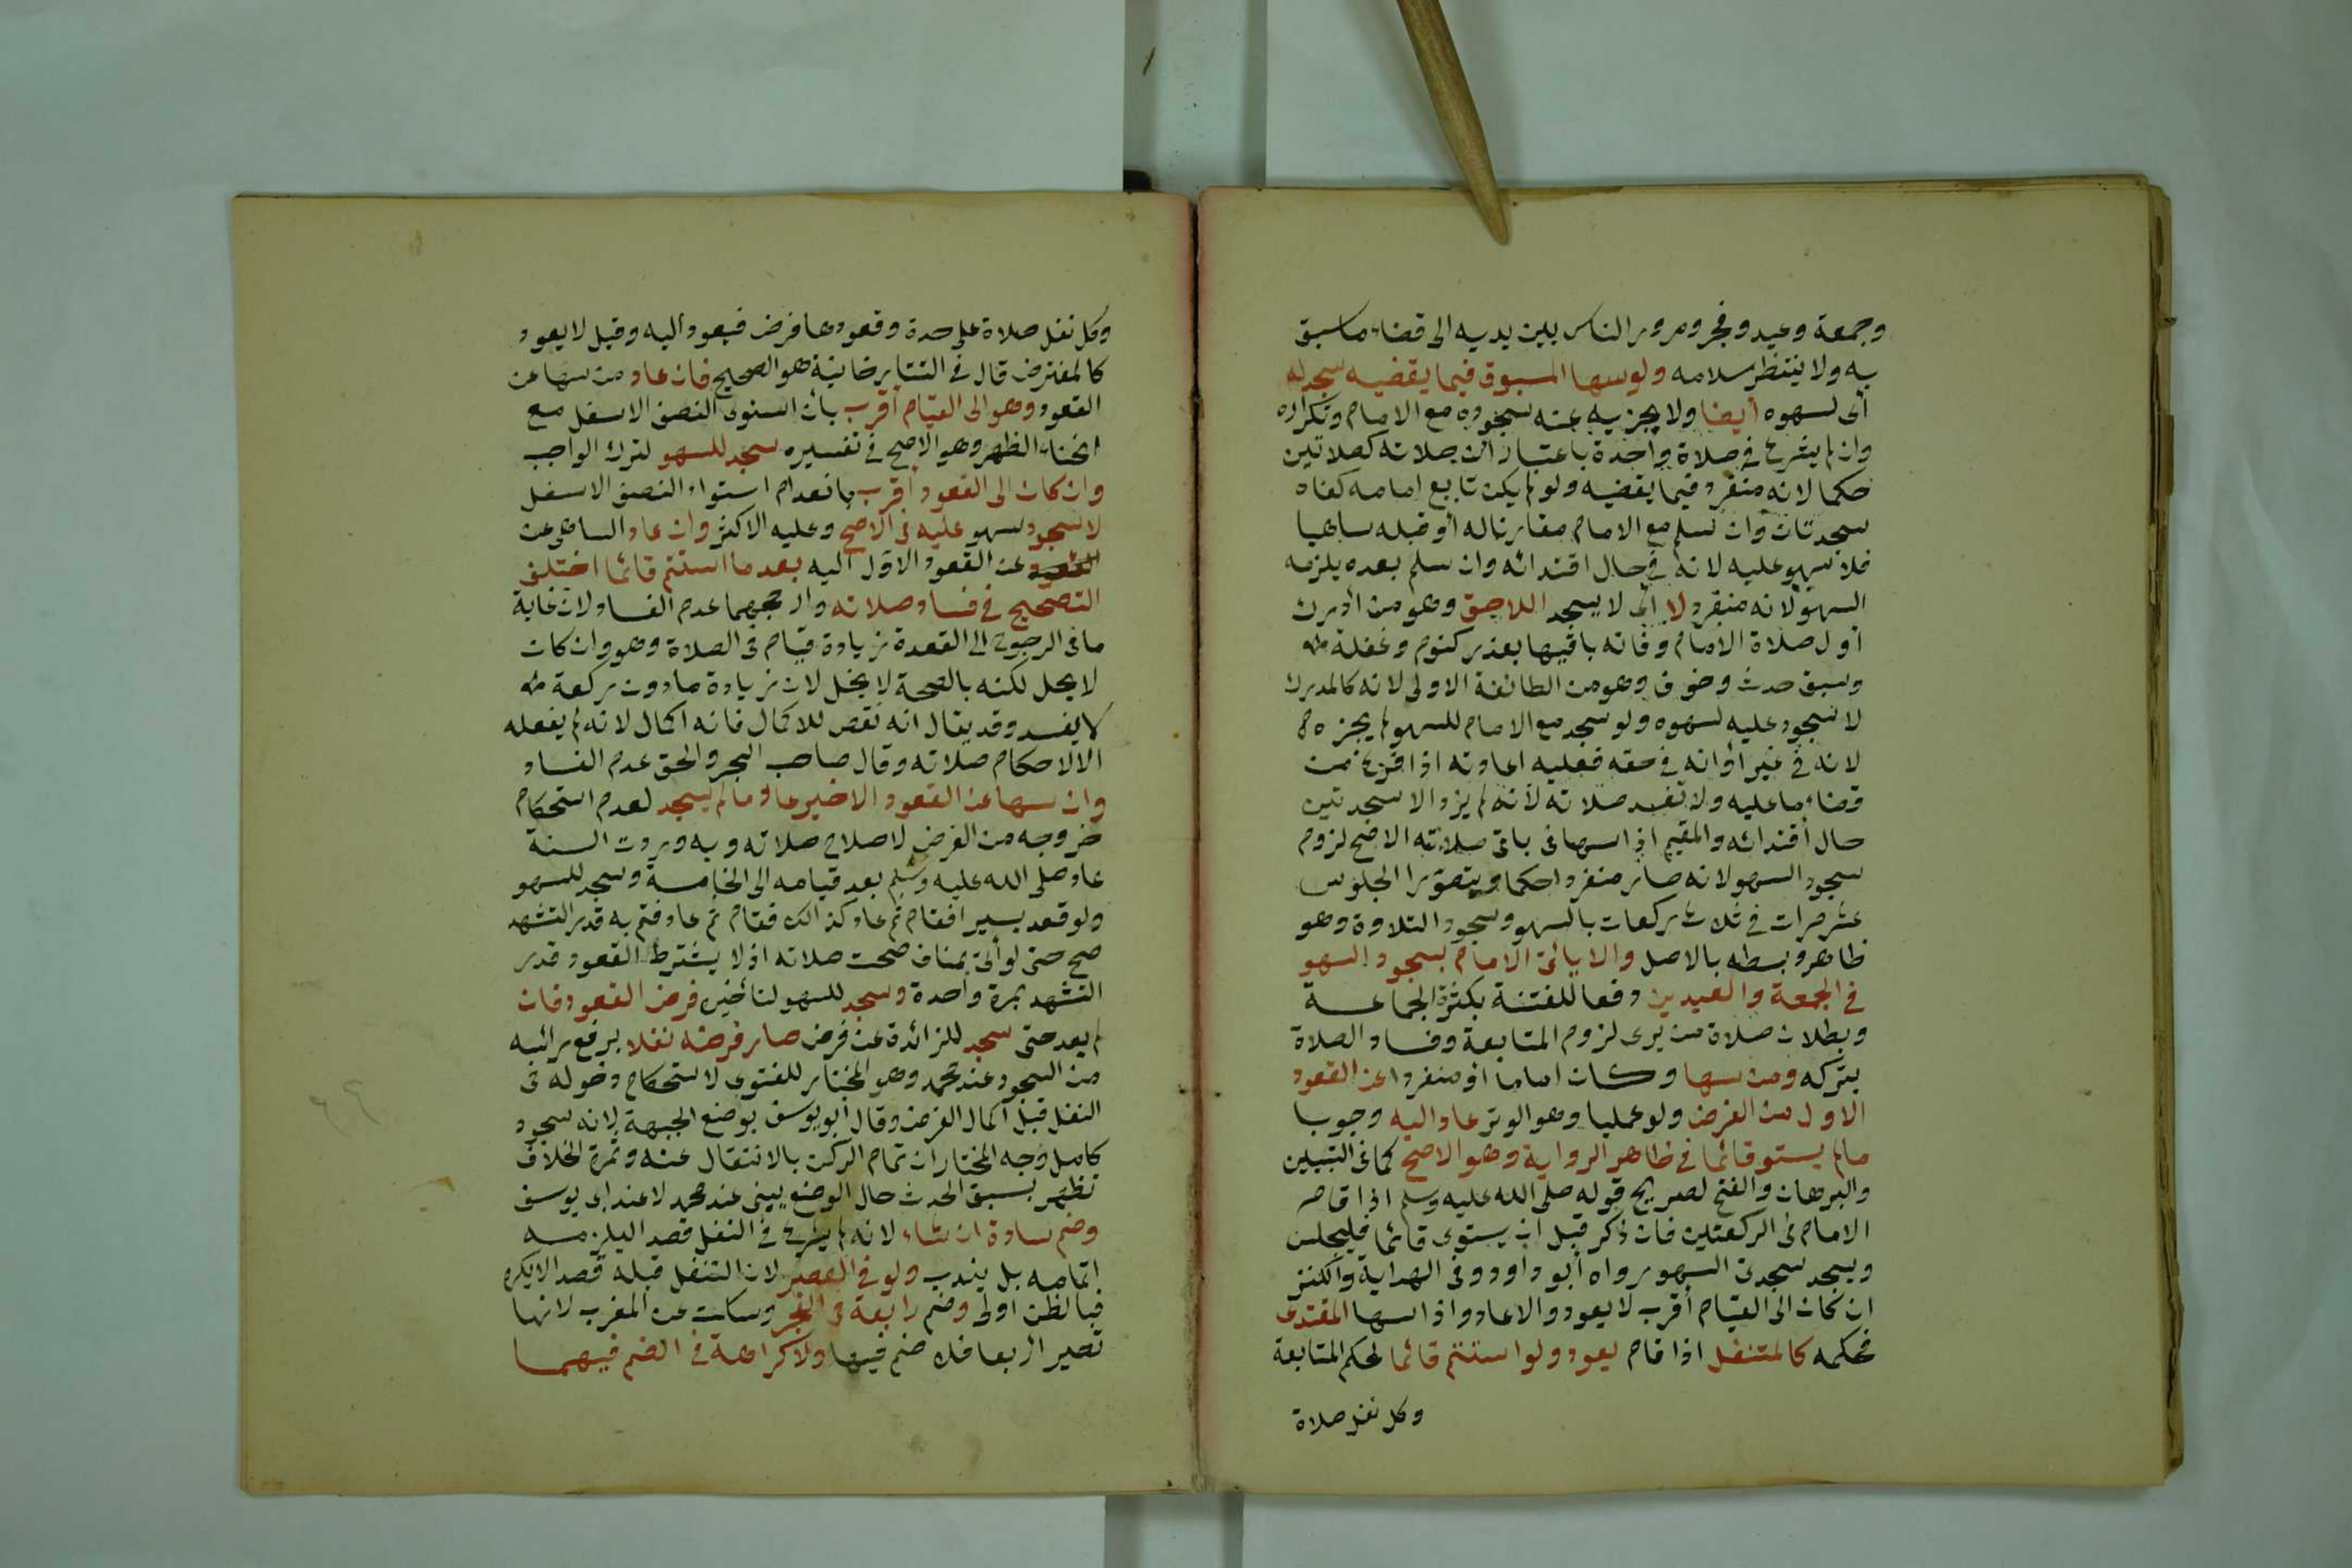 وجمعة وعيد وفجر ومرور الناس بين يديه الى قضاء ماسبق
به ولا ينتظر سلامه ولو سها المسبوق فيما يقضيه سجد له
أى لسهوه أيضا ولا يجزيه عنه سجوده مع الامام وتكراره
وان لم يشرع فى صلاة واحدة باعتبار ان صلاته كصلاتين
حكما لانه منفرد فيما يقضيه ولو لم يكن تابع امامه كفاه
سجدتان وان سلم مع الامام مقارنا له أو قبله ساهيا
فلا سهو عليه لانه فى حال اقتدائه وان سلم بعده يلزمه
السهو لانه منفرد لا أى لا يسجد اللاحق وهو من أدرك
أول صلاة الامام وفاته باقيها بعذر كنوم وغفلة
وسبق حدث وخوف وهو من الطائفة الاولى لانه كالمدرك
لا سجود عليه لسهوه ولو سجد مع الامام للسهو لم يجزه
لانه فى غير أوانه فى حقه فعليه اعادته اذا فرغ من
قضاء ما عليه ولا تفسد صلاته لأنه لم يزد الا سجدتين
حال اقتدائه والمقيم اذا سها فى باقى صلاته الاصح لزوم
سجود السهو لانه صار منفردا حكما ويتصور الجلوس
عشر مرات فى ثلاث ركعات بالسهو وسجود التلاوة وهو
ظاهر وبسطه بالاصل والا يأتى الامام بسجود السهو
فى الجمعة والعيدين دفعا للفتنة بكثرة الجماعة
وبطلان صلاة من يرى لزوم المتابعة وفساد الصلاة
بتركه ومن سها وكان اماما أو منفردا عن القعود
الاول من الفرض ولو عمليا وهو الوتر عاد اليه وجوبا
مالم يستو قائما فى ظاهر الرواية وهو الاصح كما فى التبيين
والبرهان والفتح لصريح قوله صلى الله عليه وسلم اذا قام
الامام فى الركعتين فان ذكر قبل ان يستوى قائما فليجلس
ويسجد سجدتى السهو رواه أبو داود وفى الهداية والكنز
ان كان الى القيام أقرب لا يعود والا عاد واذا سها المقتدى
فحكمه كالمتنفل اذا قام يعود ولو استتم قائما لحكم المتابعة
وكل نفل صلاة
وكل نفل صلاة على حدة وقعودها فرض فيعود اليه وقيل لا يعود
كالمفترض قال فى التتارخانية هو الصحيح فان عاد من سها عن
القعود وهو الى القيام أقرب بأن استوى النصف الاسفل مع
انحناء الظهر وهو الاصح فى تفسيره سجد للسهو لترك الواجب
وان كان الى القعود أقرب بانعدام استواء النصف الاسفل
لا سجود سهو عليه فى الاصح وعليه الاكثر وان عاد الساهى عن
عن القعود الاول اليه بعدما استتم قائما اختلف
التصحيح فى فساد صلاته وارجحهما عدم الفساد لان غاية
ما فى الرجوع الى القعدة زيادة قيام فى الصلاة وهو وان كان
لا يحل لكنه بالصحة لا يخل لان زيادة مادون ركعة
لا يفسد وقد يقال انه نقص للاكمال فانه اكمال لانه لم يفعله
الا لاحكام صلاته وقال صاحب البحر والحق عدم الفساد
وان سها عن القعود الاخير عاد مالم يسجد لعدم استحكام
خروجه من الفرض لاصلاح صلاته وبه وردت السنة
عاد صلى الله عليه وسلم بعد قيامه الى الخامسة وسجد للسهو
ولو قعد يسيرا فقام ثم عاد كذلك فقام ثم عاد فتم به قدر التشهد
صح حتى لو أتى بمناف صحت صلاته اذ لا يشترط القعود قدر
التشهد بمرة واحدة وسجد للسهو لتأخير فرض القعود فان
لم يعد حتى سجد للزائدة عن فرض صار فرضه نفلا برفع رأسه
من السجود عند محمد وهو المختار للفتوى لاستحكام دخوله فى
النفل قبل اكمال الفرض وقال أبو يوسف بوضع الجبهة لانه سجود
كامل وجه المختار ان تمام الركن بالانتقال عنه وثمرة الخلاف
تظهر بسبق الحدث حال الوضع يبنى عند محمد لا عند ابى يوسف
وضم سادسة ان شاء لانه لم يشرع فى النفل قصدا ليلزمه
اتمامه بل يندب ولو فى العصر لان التنفل قبله قصدا لا يكره
فبالظن أولى وضم رابعة فى الفجر وسكت عن المغرب لانها
تصير اربعا فلا ضم فيها ولا كراهة فى الضم فيهما